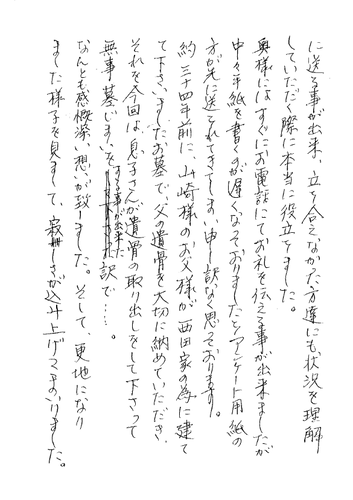 に送る事が出来、立ち合えなかった方達にも状況を理解
していただく際に本当に役立ちました。
奥様にはすぐにお電話にてお礼を伝える事が出来ましたが
中々手紙を書くのが遅くなっておりましたらアンケート用紙の
方が先に送られてきてしまい申し訳なく思っております。
約三十四年前に、山崎様のお父様が西田家の為に建て
て下さいましたお墓で父の遺骨を大切に納めていただき、
それを今回は息子さんが遺骨の取り出しをして下さって
無事墓じまいをする事が出来た訳で‥‥。
なんとも感慨深い想いが致しました。そして、更地になり
ました様子を見まして、寂しさが込み上げてまいりました。